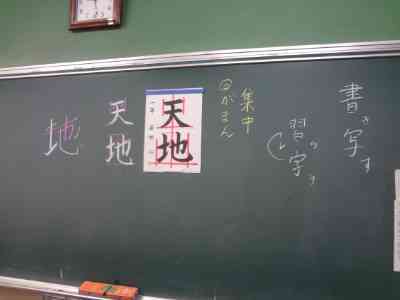 書き写す
習字
集中
がまん
天地
天地
地